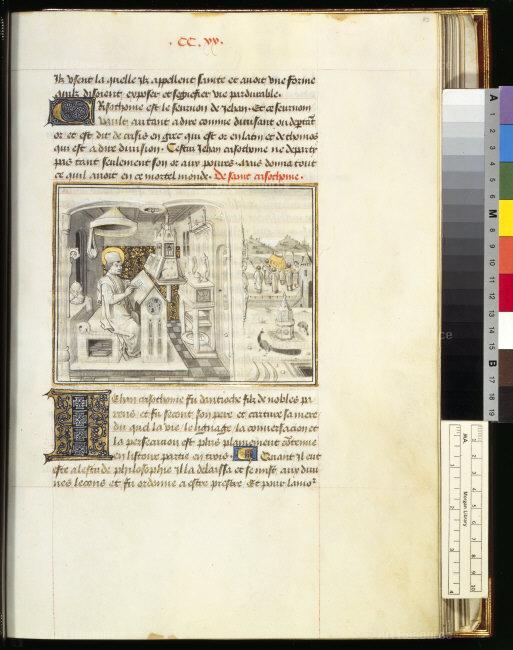 .CC.xx.
Ilz usent la quelle ilz appellent sainte et avoit une forme
quilz disoient exposer et segnefier vie pardurable.
Crisothome est le seurnom de Jehan. Et ce seurnom
vault autant a dire comme divisant ou departant
or et est dit de crisis en grec qui est or en latin et de thomos
qui est a dire division. Cestui Jehan crisothome ne departy
pas tant seulement son or aux povres. Mais donna tout
ce quil avoit en ce mortel monde. De saint crisothome.
Iehan crisothome fu dantioche filz de nobles pa
rens et fu secont son pere et sa mere
du quel la vie le lignage la conversacion et
la persecucion est plus plainement contenue
en listoire partie en trois. Quant il eut
este a lestude de philosophie il la delaissa et se mist aux divi
nes lecons et fu ordonne a estre prestre. Et pour lamor
A 1 2 3 4 5 6 M 8 9 10 11 12 13 14 15 B 17 18 19
Morgan Library